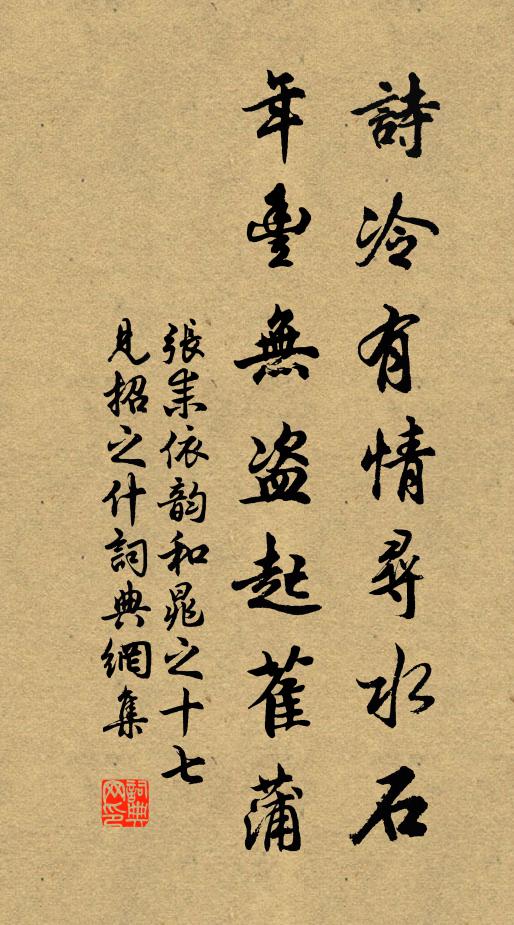 詩冷有情尋水石
年豐無盜起萑蒲
張耒依韵和晁之十七
見招之什詞典網集
詞典
网印